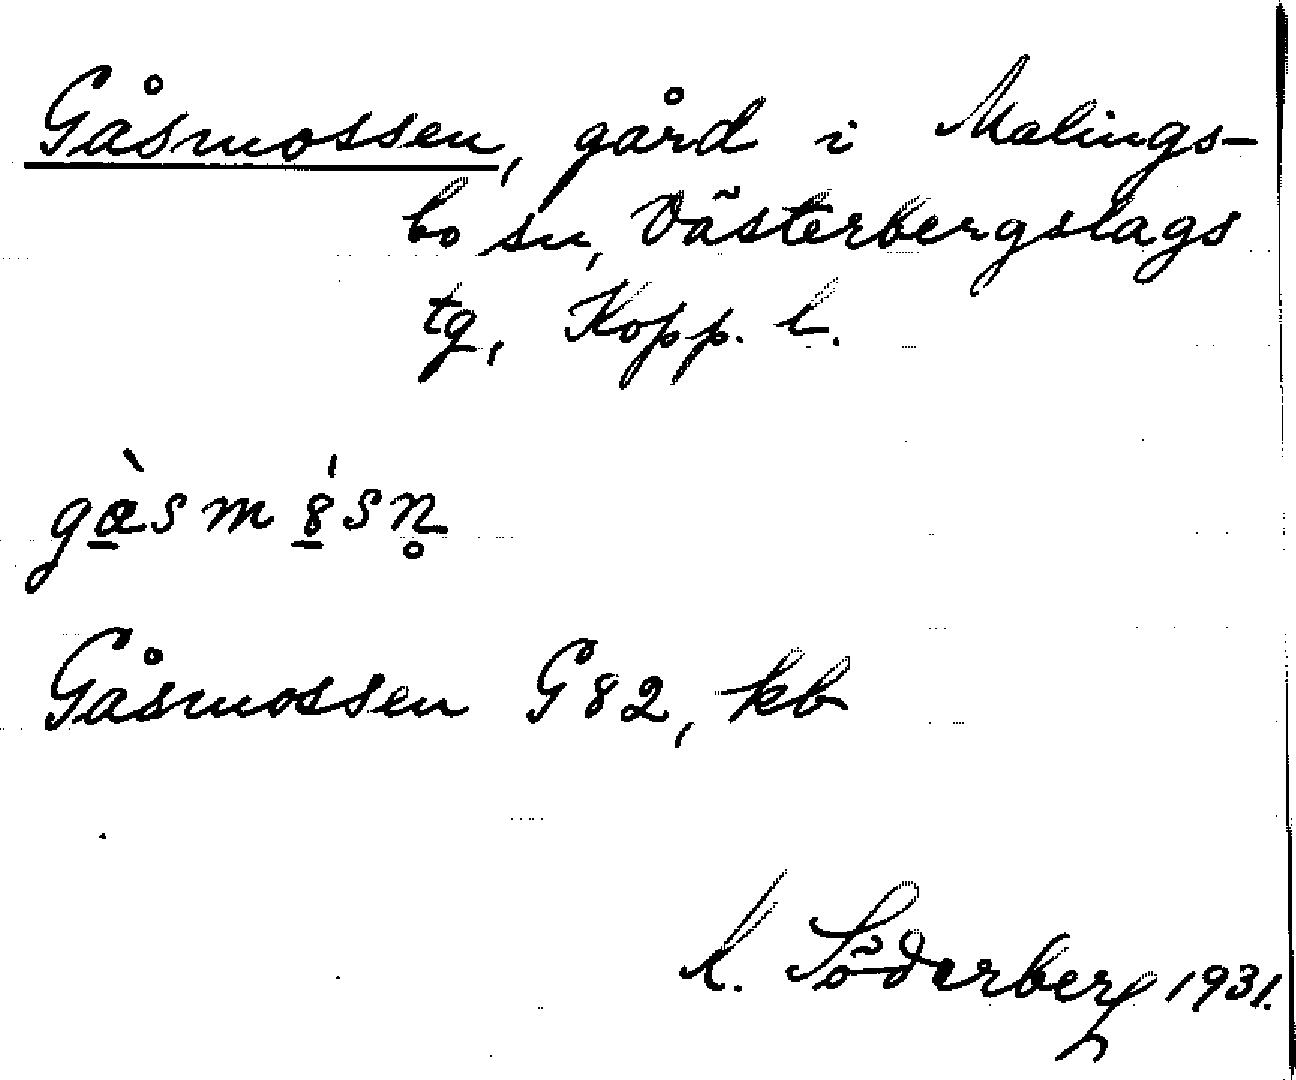 Gåsmossen, gård i Malings-
bo sn, Västerbergslags
tg, Kopp. l.
gàsm8́sn̥
Gåsmossen G82, kb
Söderberg 1931.